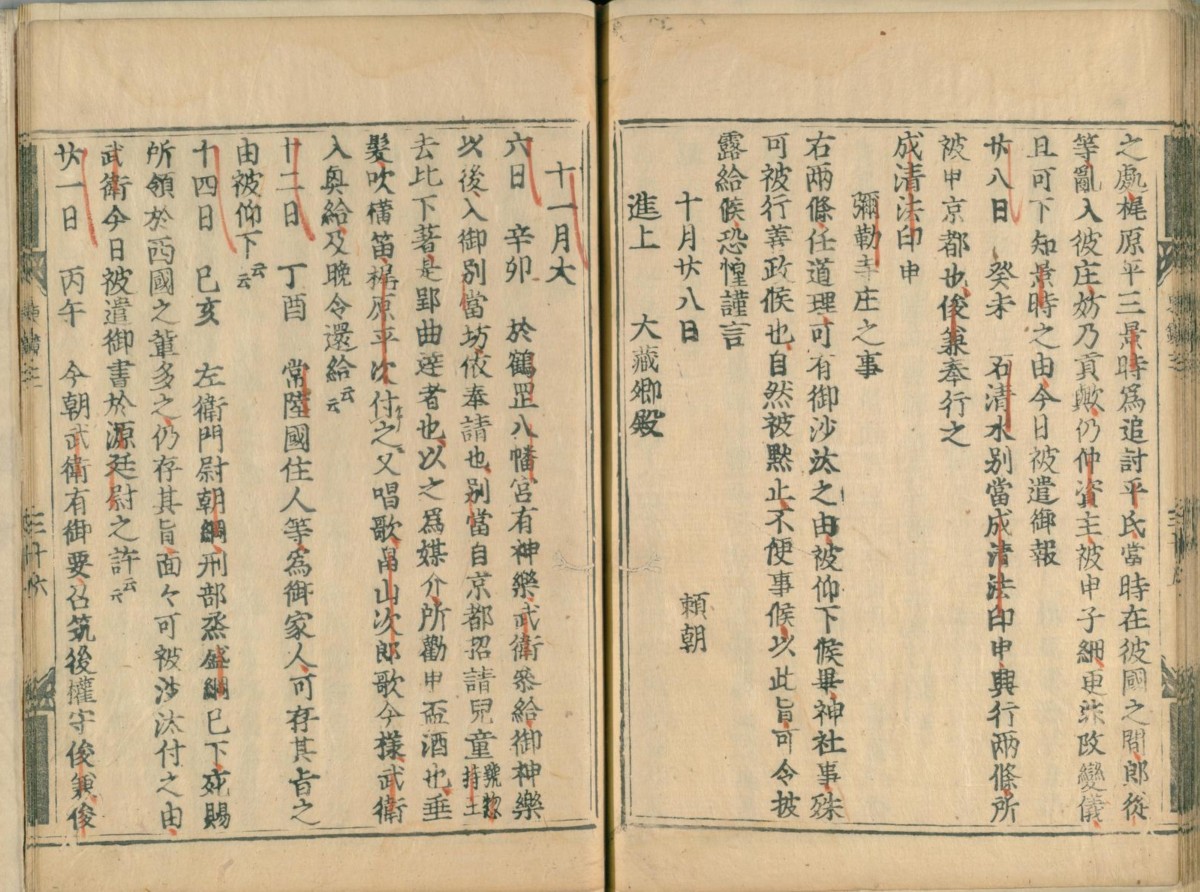 之處、梶原平三景時爲追討平氏當時在彼國之間、郎從
等亂入彼庄、妨乃貢歟、仍仲資主被申子細、更非改變儀
且可下知景時之由、今日被遣御報
廿八日　癸未　石清水別當成清法印申、興行兩條所
被申京都也、俊兼奉行之
成清法印申
彌勒寺庄之事
右兩條、任道理可有御沙汰之由、被仰下候畢、神社事、殊
可被行善政候也、自然被黙止、不便事候、以此旨、可令披
露給候、恐惶謹言
十月廿八日　頼朝
進上　大藏卿殿
十一月大
六日　辛卯　於鶴罡八幡宮有神樂、武衛參給、御神樂
以後入御別當坊、依奉請也、別當自京都招請兒童號惣持王
去比下著、是郢曲達者也、以之爲媒介、所勸申盃酒也、垂
髮吹橫笛、梶原平次付之、又唱歌、畠山次郎歌今樣、武衛
入奥給、及晩令還給云云
十二日　丁酉　常陸國住人等、爲御家人、可存其旨之
由被仰下云云
十四日　己亥　左衛門尉朝綱、刑部烝盛綱已下、宛賜
所領於西國之輩多之、仍存其旨、面々可被沙汰付之由、
武衛今日被遣御書於源廷尉之許云云
廿一日　丙午　今朝武衛有御要、召筑後權守俊兼、俊